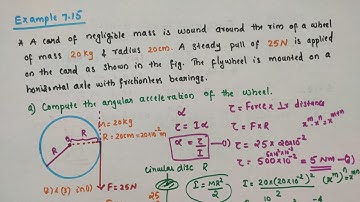 Example 7.15
* A cord of negligible mass is wound around the rim of a wheel
of mass 20 kg & radius 20cm. A steady pull of 25N is applied
on the cord as shown in the fig. The flywheel is mounted on a
horizontal axle with frictionless bearings.
a) Compute the angular acceleration of the wheel.
m = 20kg
R = 20cm = 20×10⁻²m
R
F = 25N
α
τ = Iα
α = τ/I
τ = Force × ⊥r distance
τ = F×R
τ = 25×20×10⁻²
τ = 500×10⁻² = 5 Nm
circular disc R
I = MR²/2
I = 20×(20×10⁻²)²
25